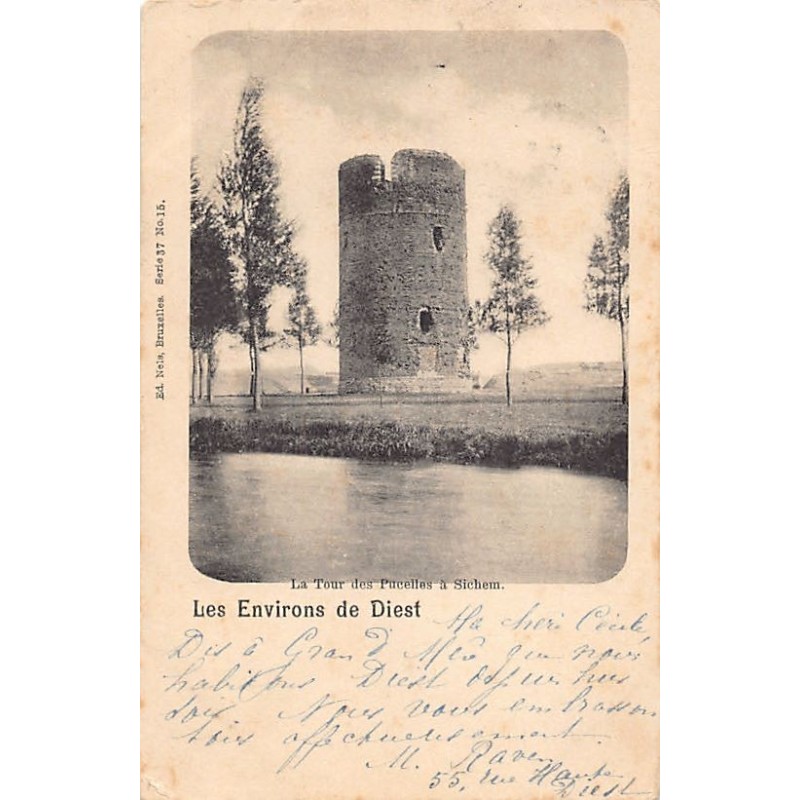 Ed. Nels, Bruxelles. Serie 37 No. 15.
La Tour des Pucelles à Sichem.
Les Environs de Diest
Ma cheri Cécile,
Dis à Grand Mère que nous
habitons Diest depuis hier
soir Nous vous embrassons
tous affectueusement.
M. Raven
55, rue Haute
Diest